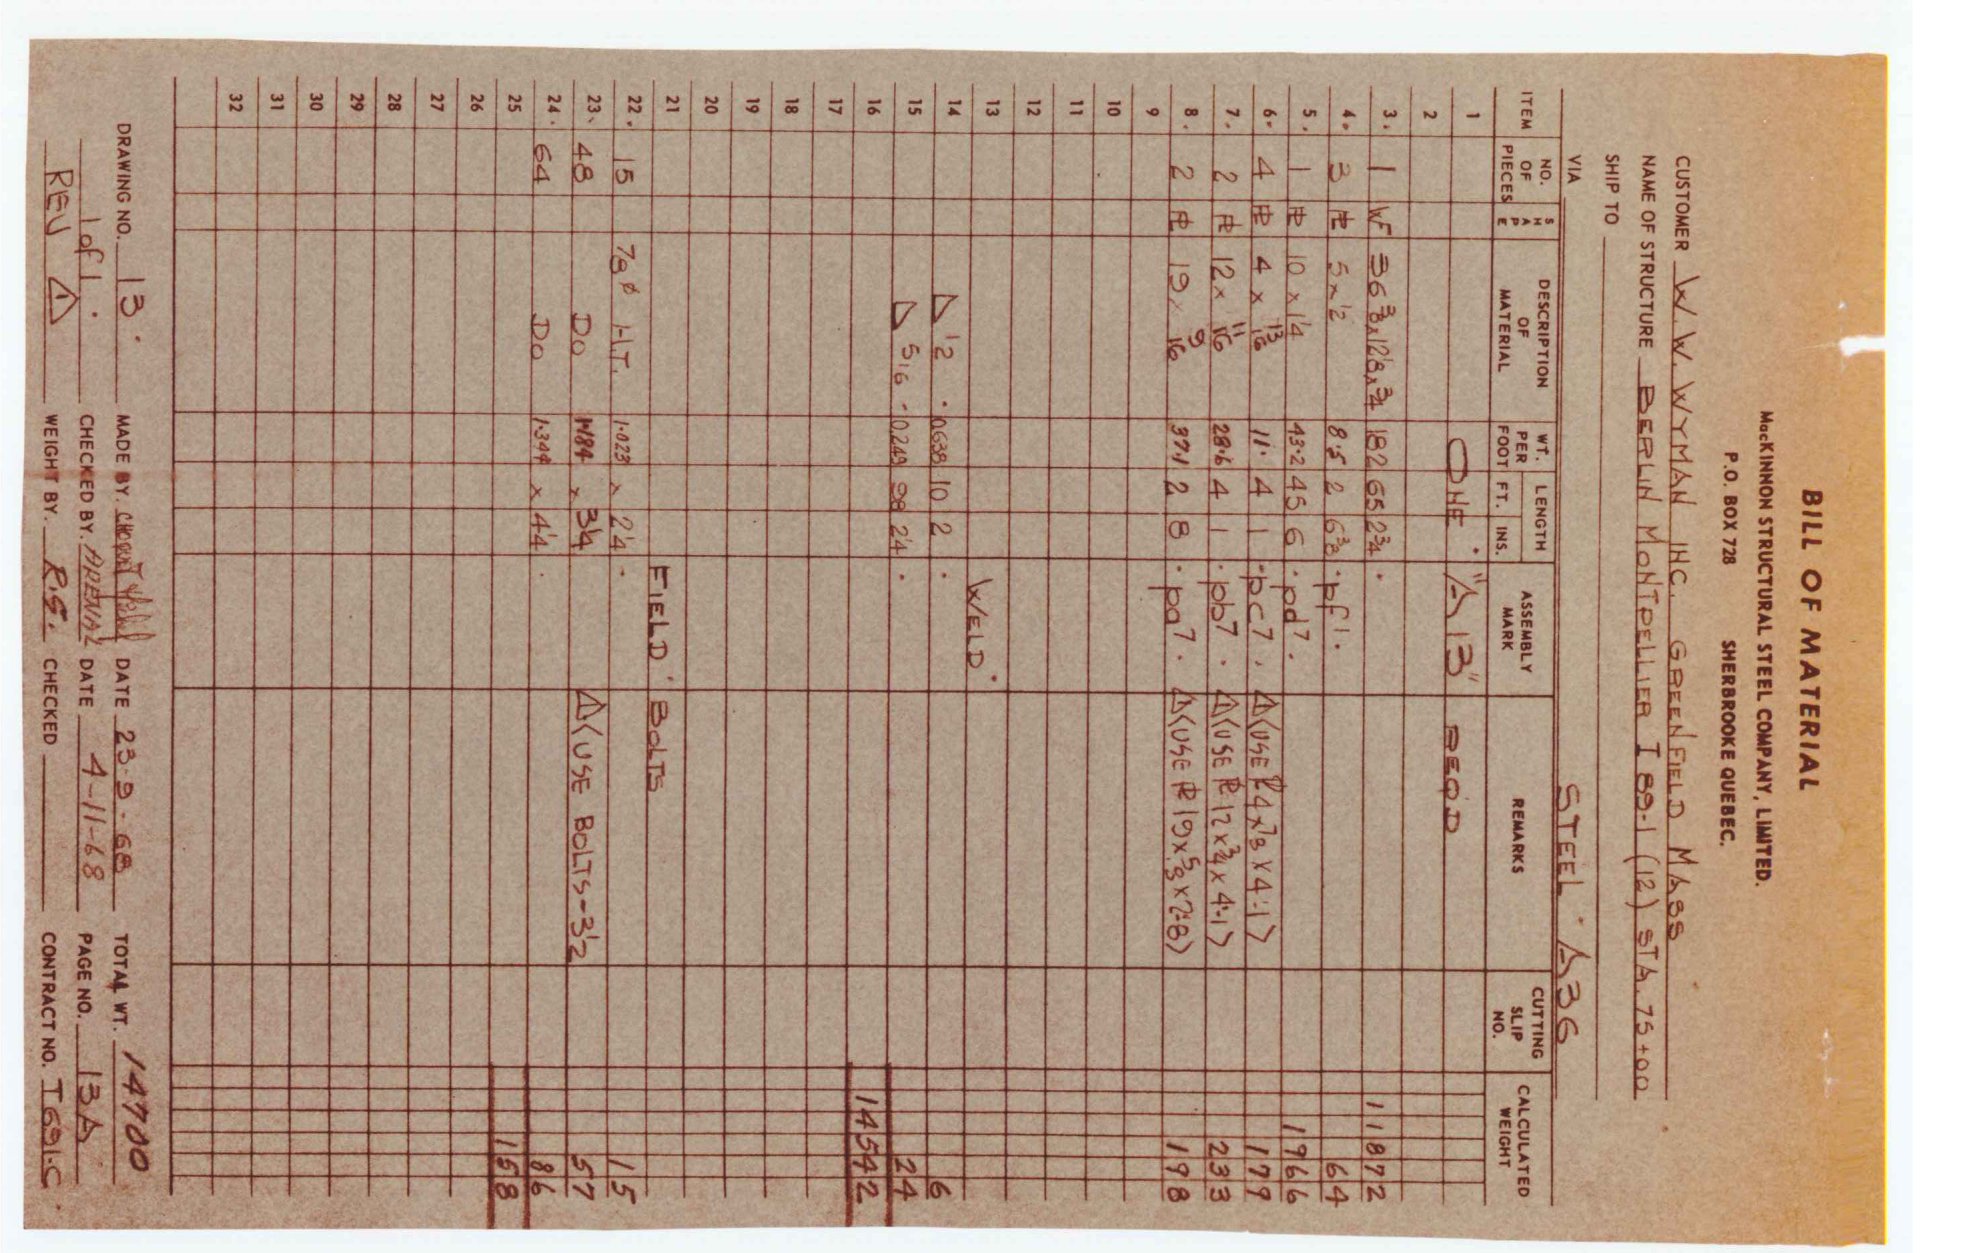 BILL OF MATERIAL
MacKINNON STRUCTURAL STEEL COMPANY, LIMITED.
P.O. BOX 728 SHERBROOKE QUEBEC.
CUSTOMER W. W. WYMAN INC. GREENFIELD MASS
NAME OF STRUCTURE BERLIN MONTPELLIER I 89-1 (12) STA. 75+00
SHIP TO
VIA STEEL · A36
ITEM NO. OF PIECES SHAPE DESCRIPTION OF MATERIAL WT. PER FOOT LENGTH FT. INS. ASSEMBLY MARK REMARKS CUTTING SLIP NO. CALCULATED WEIGHT
1 ONE · "A13" REQ'D
2
3. 1 WF 36 3/8 x 12 1/8 x 3/4 182 65 2 3/4 · 11872
4. 3 PL 5 x 1/2 8.5 2 6 3/8 · pf1. 64
5. 1 PL 10 x 1 1/4 43.2 45 6 · pd7. 1966
6. 4 PL 4 x 13/16 11. 4 1 · pc7. △1 (USE PL 4 x 7/8 x 4'-1) 179
7. 2 PL 12 x 11/16 28.6 4 1 · pb7. △1 (USE PL 12 x 3/4 x 4'-1) 233
8. 2 PL 19 x 9/16 37.1 2 8 · pa7. △1 (USE PL 19 x 5/8 x 2'-8) 198
9
10
11
12
13 WELD.
14 △ 1/2 · 0.638 10 2 · 6
15 △ 5/16 · 0.249 98 2 1/4 . 24
16 14542
17
18
19
20
21 FIELD BOLTS
22. 15 7/8 ø H.T. 1.023 x 2 1/4 · 15
23. 48 DO 1.184 x 3 1/4 △1 (USE BOLTS-3 1/2 57
24. 64 DO 1.344 x 4 1/4 . 86
25 158
26
27
28
29
30
31
32
DRAWING NO. 13. MADE BY. DATE 23-9-68 TOTAL WT. 14700
1 of 1. CHECKED BY. ARENAL DATE 4-11-68 PAGE NO. 13A
REV △1 WEIGHT BY. R.S. CHECKED CONTRACT NO. T691-C